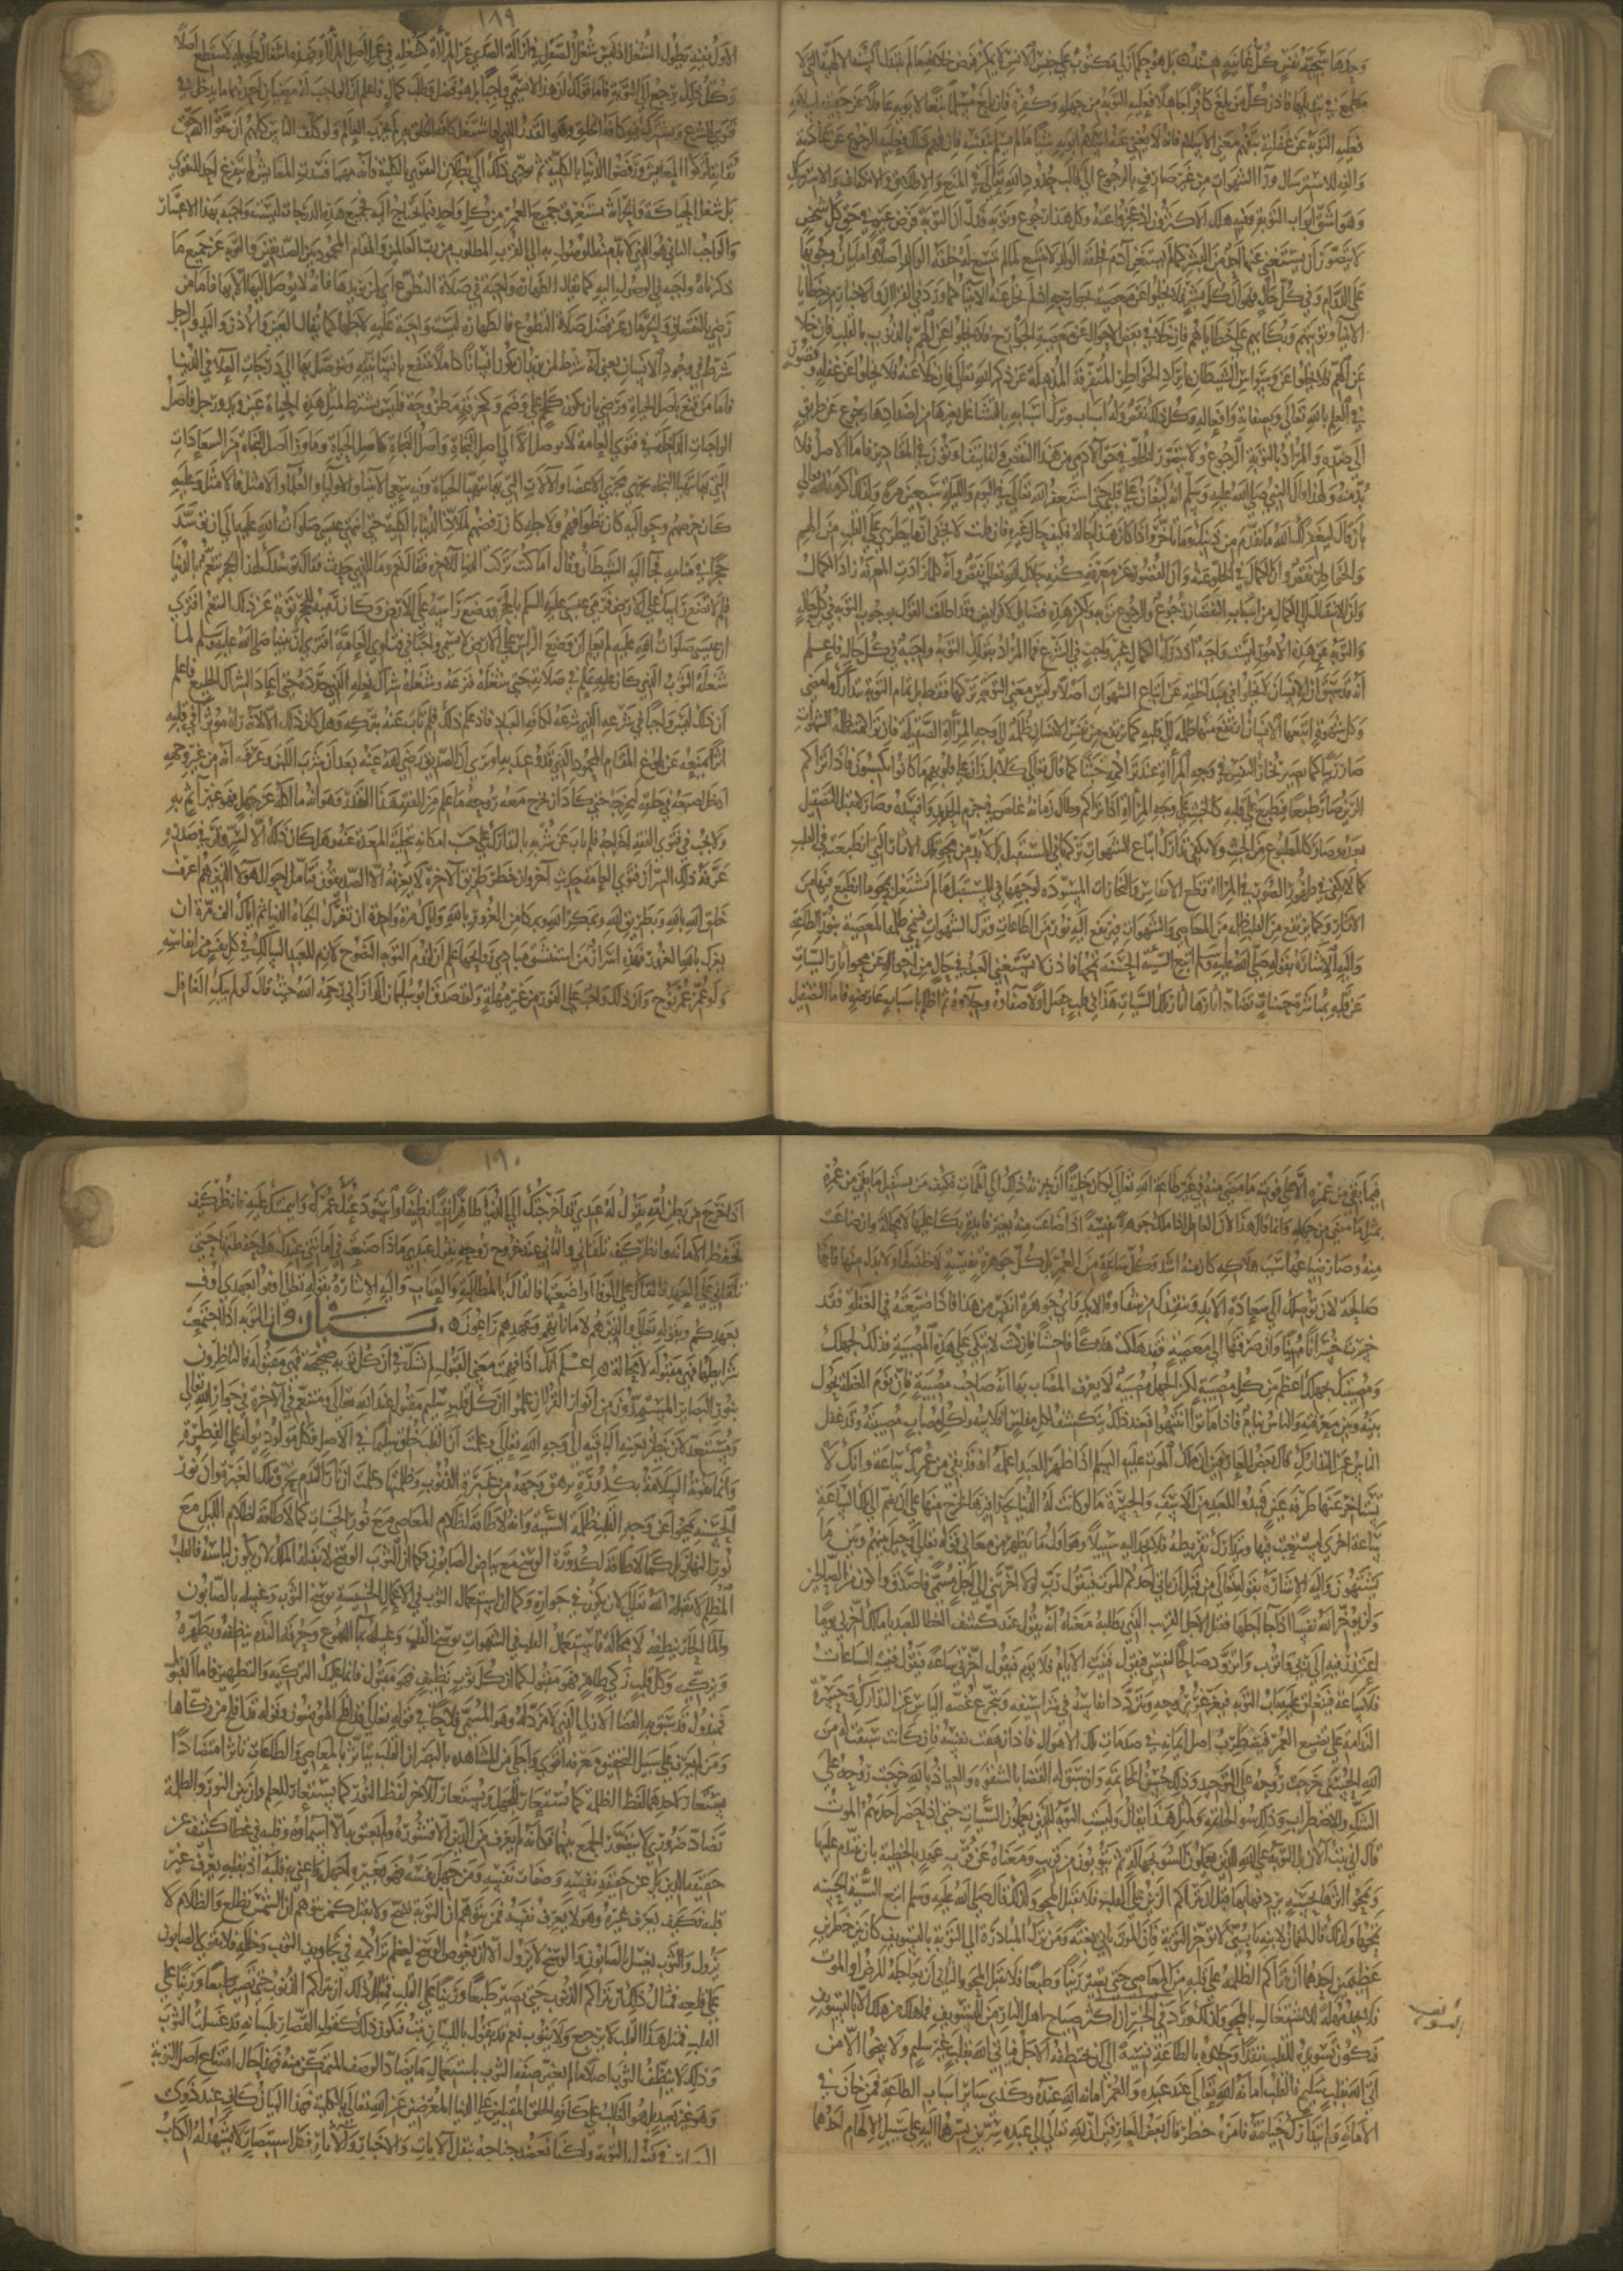 وحدها سجية نفس كل غانية هند بل هو حكم ازلي مكتوب على جنس الانس لا يمكن فرض خلافه ما لم تتبدل السنة الالهية التي لا
مطمع في تبديلها فاذن كل من بلغ كافرا جاهلا فعليه التوبة من جهله وكفره فان بلغ مسلما تبعا لابويه غافلا عن حقيقة اسلامه
فعليه التوبة عن غفلته بتفهم معنى الاسلام فانه لا يغني عنه اسلام ابويه شيئا ما لم يسلم بنفسه فان فهم ذلك فعليه الرجوع عن عادته
والفه للاسترسال ورا الشهوات من غير صارف بالرجوع الى قالب حدود الله تعالى في المنع والاطلاق والانكفاف والاسترسال
وهو اشق ابواب التوبة وفيه هلك الاكثرون اذ عجزوا عنه وكل هذا رجوع وتوبة فدل ان التوبة فرض عين في حق كل شخص
لا يتصور ان يستغني عنها احد من البشر كما لم يستغن آدم فخلقة الولد لا تتسع لما لم تتسع له خلقة الوالد اصلا واما بيان وجوبها
على الدوام وفي كل حال فهو ان كل بشر فلا يخلو عن معصية بجوارحه اذ لم يخل عنه الانبيا كما ورد في القران والاخبار من خطايا
الانبيا وتوبتهم وبكايهم على خطاياهم فان خلا في بعض الاحوال عن معصية الجوارح فلا يخلو عن الهم بالذنوب بالقلب فان خلا
عن الهم فلا يخلوا عن وسواس الشيطان بايراد الخواطر المتفرقة المذهلة عن ذكر الله تعالى فان خلا عنه فلا يخلوا عن غفلة وقصور
في العلم بالله تعالى وبصفاته وافعاله وكل ذلك نقص وله اسباب وترك اسبابه بالتشاغل بضدها رجوع عن طريق
الى ضده والمراد بالتوبة الرجوع ولا يتصور الخلو في حق الآدمي من هذا النقص وانما يتفاوتون في المقادير فاما الاصل فلا
بد منه ولهذا قال النبي صلى الله عليه وسلم انه ليغان على قلبي حتى استغفر الله تعالى في اليوم والليلة سبعين مرة ولذلك اكرمه الله تعالى
بان قال ليغفر لك الله ما تقدم من ذنبك وما تاخر واذا كان هذا حاله فكيف حال غيره فان قلت لا يخفى ان ما يطرى على القلب من الهموم
والخواطر نقص وان الكمال في الخلو عنه وان القصور عن معرفة كنه جلال الله تعالى نقص وانه كلما زادت المعرفة زاد الكمال
وان الانتقال الى الكمال من اسباب النقصان رجوع والرجوع توبة ولكن هذه فضايل لا فرايض وقد اطلقت القول بوجوب التوبة في كل حال
والتوبة عن هذه الامور ليست واجبة اذ درك الكمال غير واجب في الشرع فما المراد بقولك التوبة واجبة في كل حال فاعلم
انه قد سبق ان الانسان لا يخلوا في مبدا خلقته عن اتباع الشهوات اصلا وليس معنى التوبة تركها فقط بل تمام التوبة بتدارك ما مضى
وكل شهوة اتبعها الانسان ارتفع منها ظلمة الى قلبه كما يرتفع عن نفس الانسان ظلمة الى وجه المرآة الصقيلة فان تراكمت ظلمة الشهوات
صار رينا كما يصير بخار النفس في وجه المرآة عند تراكمه خبثا كما قال تعالى كلا بل ران على قلوبهم ما كانوا يكسبون فاذا تراكم
الرين صار طبعا فيطبع على قلبه كالخبث على وجه المرآة اذا تراكم وطال زمانه غاص في جرم الحديد وافسده وصار لا يقبل التصقيل
بعده وصار كالمطبوع من الخبث ولا يكفي في تدارك اتباع الشهوات تركها في المستقبل بل لا بد من محو تلك الاثار التي انطبعت في القلب
كما لا يكفي في ظهور الصور في المراة قطع الانفاس والبخارات المسودة لوجهها في المستقبل ما لم يشتغل بمحو ما انطبع فيها من
الاثار وكما يرتفع من القلب ظلمة من المعاصي والشهوات فيرتفع اليه نور من الطاعات وترك الشهوات فتنمحي ظلمة المعصية بنور الطاعة
واليه الاشارة بقوله صلى الله عليه وسلم اتبع السيئة الحسنة تمحها فاذن لا يستغني العبد في حال من احواله عن محو اثار السيات
عن قلبه بمباشرة حسنات تضاد آثارها آثار تلك السيات هذا في قلب حصل اولا صفاوه وجلاوه ثم اظلم باسباب عارضة فاما التصقيل
١٨٩
الاول ففيه يطول الشغل اذ ليس شغل الصقل في ازالة الصدى عن المرآة كشغله في عمل اصل المرآة فهذه اشغال طويلة لا تنقطع اصلا
وكل ذلك يرجع الى التوبة فاما قولك ان هذا لا يسمى واجبا بل هو فضل وطلب كمال فاعلم ان الواجب له معنيان احدهما ما يدخل في
فتوى الشرع ويشترك فيه كافة الخلق وهو القدر الذي لو اشتغل به كافة الخلق لم يخرب العالم ولو كلف الناس كلهم ان يتقوا الله حق
تقاته لتركوا المعايش ورفضوا الدنيا بالكلية ثم يودي ذلك الى بطلان التقوى بالكلية فانه مهما فسدت المعايش لم يتفرغ احد للتقوى
بل شغل الحياكة والحراثة يستغرق جميع العمر من كل واحد فيما يحتاج اليه فجميع هذه الدرجات ليست واجبة بهذا الاعتبار
والواجب الثاني هو الذي لا بد منه للوصول به الى القرب المطلوب من رب العالمين والمقام المحمود بين الصديقين والتوبة عن جميع ما
ذكرناه واجبة في الوصول اليه كما يقال الطهارة واجبة في صلاة التطوع اي لمن يريدها فانه لا يوصل اليها الا بها فاما من
رضي بالنقصان والحرمان عن فضل صلاة التطوع فالطهارة ليست واجبة عليه لاجلها كما يقال العين والاذن واليد والرجل
شرط في وجود الانسان يعني انه شرط لمن يريد ان يكون انسانا كاملا ينتفع بانسانيته ويتوصل بها الى درجات العلا في الدنيا
فاما من قنع باصل الحياة ورضي بان يكون كلحم على وضم وكخرقة مطروحة فليس يشترط لمثل هذه الحياة عين ويد ورجل فاصل
الواجبات الداخلة في فتوى العامة لا يوصل الا الى اصل النجاة واصل النجاة كاصل الحياة وما ورا اصل النجاة من السعادات
التي بها تتهيا النجاة يجري مجرى الاعضا والآلات التي بها تتهيا الحياة وفيه سعى الانبيا والاوليا والعلما والامثل فالامثل وعليه
كان حرصهم وحواليه كان تطوافهم ولاجله كان رفضهم لملاذ الدنيا بالكلية حتى انتهى عيسى صلوات الله عليه الى ان توسد
حجرا في منامه فجا اليه الشيطان وقال اما كنت تركت الدنيا للآخرة فقال نعم وما الذي حدث فقال توسدك لهذا الحجر تنعم بالدنيا
فلم لا تضع راسك على الارض فرمى عيسى عليه السلم بالحجر ووضع راسه على الارض وكان رميه للحجر توبة عن ذلك التنعم افترى
ان عيسى صلوات الله عليه لم يعلم ان وضع الراس على الارض لا يسمى واجبا في فتاوى العامة افترى ان نبينا صلى الله عليه وسلم لما
شغله الثوب الذي كان عليه علم في صلاته حتى شغله نزعه وشغله شراك نعله الذي جدده حتى اعاد الشراك الخلق فاعلم
ان ذلك ليس واجبا في شرعه الذي شرعه لكافة العباد فاذ علم ذلك فلم تاب عنه بتركه وهل كان ذلك الا لانه رآه موثرا في قلبه
اثرا يمنعه عن بلوغ المقام المحمود الذي قد وعد به اوترى ان الصديق رضي الله عنه بعد ان شرب اللبن وعرف انه من غير وجهه
ادخل اصبعه في حلقه ليخرجه حتى كاد ان يخرج معه روحه ما علم من الفقه هذا القدر وهو انه ما اكله عن جهل فهو غير آثم به
ولا يجب في فتوى الفقه اخراجه فلم تاب عن شربه بالتدارك على حسب امكانه بتخلية المعدة عنه وهل كان ذلك الا لسر وقر في صدره
عرفه ذلك السر ان فتوى العامة حديث آخر وان خطر طريق الآخرة لا يعرفه الا الصديقون فتامل احوال هولا الذين هم اعرف
خلق الله بالله وبطريق الله وبمكر الله وبمكامن الغرور بالله واياك مرة واحدة ان تغرك الحياة الدنيا ثم اياك الف مرة ان
يغرك بالله الغرور فهذه اسرار من استنشق مبادي روايحها علم ان لزوم التوبة النصوح لازم للعبد السالك في كل نفس من انفاسه
ولو عمر عمر نوح وان ذلك واجب على الفور من غير مهلة ولقد صدق ابو سليمان الداراني رحمه الله حيث قال لو لم يبك العاقل
فيما بقي من عمره الا على فوت ما مضى منه في غير طاعة الله تعالى لكان خليقا ان يحزنه ذلك الى الممات فكيف من يستقبل ما بقي من عمره
بمثل ما مضى من جهله وانما قال هذا لان العاقل اذا ملك جوهرة نفيسة اذا ضاعت منه بغير فايدة بكا عليها لا محالة وان ضاعت
منه وصار ضياعها سبب هلاكه كان منه اشد وكل ساعة من العمر بل كل جوهرة نفيسة لا خلف لها ولا بدل منها فانها
صالحة لان توصلك الى سعادة الابد وتنقذك من شقاوة الابد فاي جوهرة انفس من هذا فاذا ضيعتها في الغفلة فقد
خسرت خسرانا مبينا وان صرفتها الى معصية فقد هلكت هلاكا فاحشا فان كنت لا تبكي على هذه المصيبة فذلك لجهلك
ومصيبتك بجهلك اعظم من كل مصيبة لكن الجهل مصيبة لا يعرف المصاب بها انه صاحب مصيبة فان نوم الغفلة يحول
بينه وبين معرفته والناس نيام فاذا ماتوا انتبهوا فعند ذلك ينكشف لكل مفلس افلاسه ولكل مصاب مصيبته وقد غفل
الناس عن التدارك قال بعض العارفين ان ملك الموت عليه السلم اذا ظهر للعبد اعلمه انه قد بقي من عمرك ساعة وانك لا
تستاخر عنها طرفة عين فيبدوا للعبد من الاسف والحسرة ما لو كانت له الدنيا بحذافيرها لخرج منها على ان يضم الى تلك الساعة
ساعة اخرى ليستعتب فيها ويتدارك تفريطه فلا يجد اليه سبيلا وهو اول ما يظهر من معاني قوله تعالى وحيل بينهم وبين ما
يشتهون واليه الاشارة بقوله تعالى من قبل ان ياتي احدكم الموت فيقول رب لولا اخرتني الى اجل مسمى فاصدق واكون من الصالحين
ولن يوخر الله نفسا اذا جا اجلها فقيل الاجل القريب الذي يطلبه معناه انه يقول عند كشف الغطا للعبد يا ملك اخرني يوما
اعتذر فيه الى ربي واتوب واتزود صالحا لنفسي فيقول فنيت الايام فلا يوم فيقول اخرني ساعة فيقول فنيت الساعات
فلا ساعة فيغلق عليه باب التوبة فيغرغر بروحه وتتردد انفاسه في شراسفه ويتجرع غصة الياس عن التدارك وحسرة
الندامة على تضييع العمر فيضطرب اصل ايمانه في صدمات تلك الاهوال فاذا زهقت نفسه فان كانت سبقت له من
الله الحسنى خرجت روحه على التوحيد وذلك حسن الخاتمة وان سبق له القضا بالشقوة والعياذ بالله خرجت روحه على
الشك والاضطراب وذلك سوء الخاتمة ولمثل هذا يقال وليست التوبة للذين يعملون السيات حتى اذا حضر احدهم الموت
قال اني تبت الآن انما التوبة على الله للذين يعملون السوء بجهالة ثم يتوبون من قريب ومعناه عن قرب عهد بالخطيئة بان يتقدم عليها
ويمحو اثرها بحسنة يردفها بها قبل ان يتراكم الرين على القلب فلا يقبل المحو ولذلك قال صلى الله عليه وسلم اتبع السيئة الحسنة
تمحها ولذلك قال لقمان لابنه يا بني لا توخر التوبة فان الموت ياتي بغتة ومن ترك المبادرة الى التوبة بالتسويف كان بين خطرين
عظيمين احدهما ان تتراكم الظلمة على قلبه من المعاصي حتى يصير رينا وطبعا فلا يقبل المحو والثاني ان يعاجله المرض او الموت
فلا يجد مهلة للاشتغال بالمحو ولذلك ورد في الخبر ان اكثر صياح اهل النار من التسويف فما هلك من هلك الا بالتسويف
فيكون تسويده للقلب نقدا وجلاوه بالطاعة نسية الى ان يختطفه الاجل فياتي الله بقلب غير سليم ولا ينجوا الا من
اتى الله بقلب سليم فالقلب امانة الله تعالى عند عبده والعمر امانة الله عنده وكذى ساير اسباب الطاعة فمن خان في
الامانة ولم يتدارك خيانته فامره خطر قال بعض العارفين ان لله تعالى الى عبده سرين يسرهما اليه على سبيل الالهام احدهما
١٩٠
اذا خرج من بطن امه يقول له عبدي قد اخرجتك الى الدنيا طاهرا نقيا نظيفا واستودعتك عمرك وايتمنتك عليه فانظر كيف
تحفظ الامانة وانظر كيف تلقاني والثاني عند خروج روحه يقول عبدي ماذا صنعت في امانتي عندك هل حفظتها حتى
تلقاني على العهد فالقاك على الوفا او اضعتها فالقاك بالمطالبة والعقاب واليه الاشارة بقوله تعالى اوفوا بعهدي اوف
بعهدكم وبقوله تعالى والذين هم لاماناتهم وعهدهم راعون بيان ان التوبة اذا اجتمعت
شرايطها فهي مقبولة لا محالة اعلم انك اذا فهمت معنى القبول لم تشك في ان كل توبة صحيحة فهي مقبولة فالناظرون
بنور البصاير المستمدون من انوار القران علموا ان كل قلب سليم مقبول عند الله تعالى ومتنعم في الآخرة في جوار الله تعالى
ويستعد لان ينظر بعينه الباقية الى وجه الله تعالى وعلمت ان القلب خلق سليما في الاصل فكل مولود يولد على الفطرة
وانما تفوته السلامة بكدورة ترهق وجهه من غبرة الذنوب وظلمتها وعلمت ان نار الندم تحرق تلك الغبرة وان نور
الحسنة يمحو عن وجه القلب ظلمة السيئة وانه لا طاقة لظلام المعاصي مع نور الحسنات كما لا طاقة لظلام الليل مع
نور النهار بل كما لا طاقة لكدورة الوسخ مع بياض الصابون وكما ان الثوب الوسخ لا يقبله الملك لان يكون لباسه فالقلب
المظلم لا يقبله الله تعالى لان يكون في جواره وكما ان استعمال الثوب في الاعمال الخسيسة يوسخ الثوب وغسله بالصابون
والما الحار ينظفه لا محالة فاستعمال القلب في الشهوات يوسخ القلب وغسله بما الدموع وحرقة الندم ينظفه ويطهره
ويزكيه وكل قلب زكي طاهر فهو مقبول كما ان كل ثوب نظيف فهو مقبول فانما عليك التزكية والتطهير فاما القبول
فمبذول قد سبق به القضا الازلي الذي لا مرد له وهو المسمى فلاحا في قوله تعالى قد افلح المومنون وقوله قد افلح من زكاها
ومن لم يعرف على سبيل التحقيق معرفة اقوى واجلى من المشاهدة بالبصر ان القلب يتاثر بالمعاصي والطاعات تاثرا متضادا
يستعار لاحدهما لفظ الظلمة كما يستعار للجهل ويستعار للآخر لفظ النور كما يستعار للعلم وان بين النور والظلمة
تضاد ضروري لا يتصور الجمع بينهما فكانه لم يعرف من الدين الا قشوره ولم يعلق به الا اسماوه وقلبه في غطا كثيف عن
حقيقة الدين بل عن حقيقة نفسه وصفات نفسه ومن جهل نفسه فهو بغيره اجهل واعني به قلبه اذ بقلبه يعرف غير
قلبه فكيف يعرف غيره وهو لا يعرف نفسه فمن يتوهم ان التوبة تصح ولا تقبل كمن يتوهم ان الشمس تطلع والظلام لا
يزول والثوب يغسل بالصابون والوسخ لا يزول الا ان يغوص الوسخ لطول تراكمه في تجاويف الثوب وخلله فلا يقوى الصابون
على قلعه فمثال ذلك ان تتراكم الذنوب حتى تصير طبعا ورينا على القلب
القلب فمثل هذا القلب لا يرجع ولا يتوب نعم قد يقول باللسان تبت فيكون ذلك كقول القصار بلسانه قد غسلت الثوب
وذلك لا ينظف الثوب اصلا ما لم يغير صفة الثوب باستعمال ما يضاد الوصف المتمكن منه فهذا حال امتناع اصل التوبة
وهو غير بعيد بل هو الغالب على كافة الخلق المقبلين على الدنيا المعرضين عن الله تعالى بالكلية فهذا البيان كاف عند ذوي
في قبول التوبة ولكنا نعضد جناحه بنقل الآيات والاخبار والآثار فكل استبصار لا يشهد له الكتاب